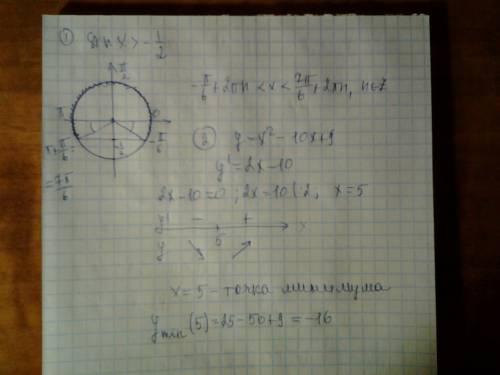 ① sin x > -1/2
π/2
π
0
π+π/6=
-π/6
-1/2
=7π/6
-π/6+2πn < x < 7π/6+2πn, n∈Z
② y=x²-10x+9
y'=2x-10
2x-10=0; 2x=10|:2, x=5
y' - + x
5
y ↘ ↗
x=5 - точка минимума
y min (5)=25-50+9=-16